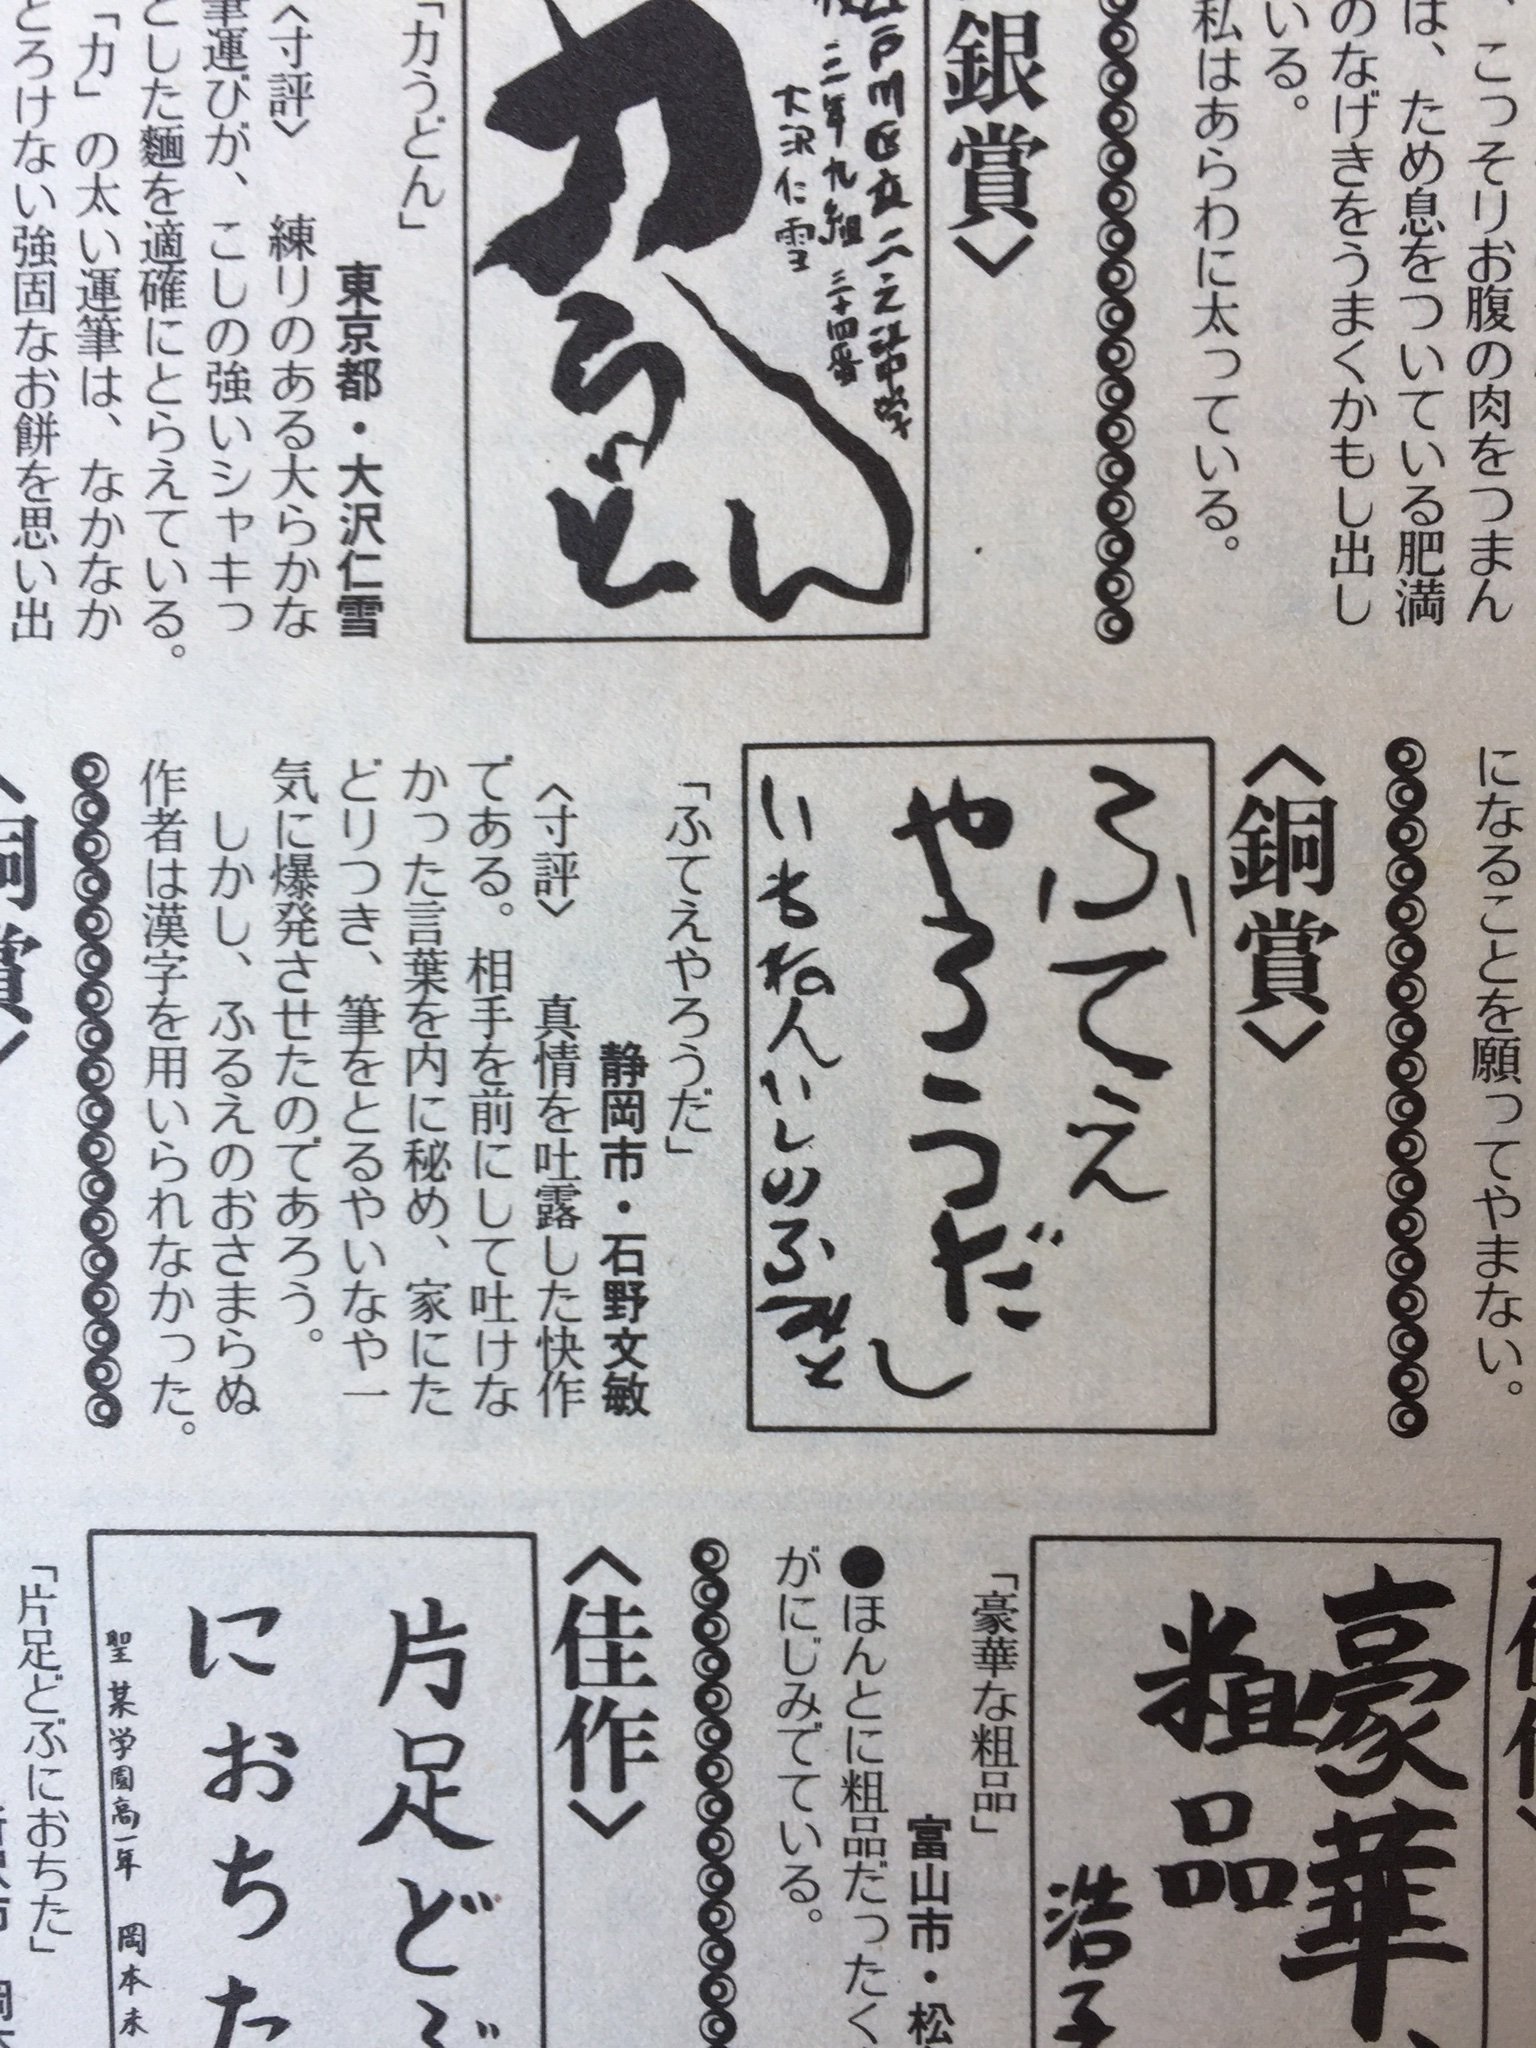 、こっそりお腹の肉をつまん
は、ため息をついている肥満
のなげきをうまくかもし出し
いる。
私はあらわに太っている。
銀賞〉
江戸川区立二之江中学
三年九組 三十四番
大沢仁雪
力うどん
「力うどん」
東京都・大沢仁雪
〈寸評〉 練りのある大らかな
筆運びが、こしの強いシャキっ
とした麵を適確にとらえている。
「力」の太い運筆は、なかなか
とろけない強固なお餅を思い出
になることを願ってやまない。
〈銅賞〉
ふてえ
やろうだ
いしの ふみとし
「ふてえやろうだ」
静岡市・石野文敏
〈寸評〉 真情を吐露した快作
である。相手を前にして吐けな
かった言葉を内に秘め、家にた
どりつき、筆をとるやいなや一
気に爆発させたのであろう。
しかし、ふるえのおさまらぬ
作者は漢字を用いられなかった。
銅賞〉
豪華な
粗品
浩子
「豪華な粗品」
富山市・松
●ほんとに粗品だったく
がにじみでている。
〈佳作〉
片足どぶ
におちた
聖某学園高一年 岡本未
「片足どぶにおちた」